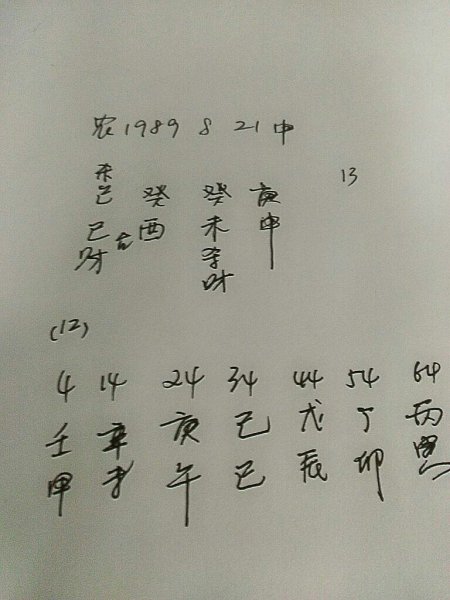 农1989 8 21申
杀 13
己 癸 癸 庚
巳 合 酉 未 申
财 杀
财
(12)
4 14 24 34 44 54 64
壬 辛 庚 己 戊 丁 丙
申 未 午 巳 辰 卯 寅